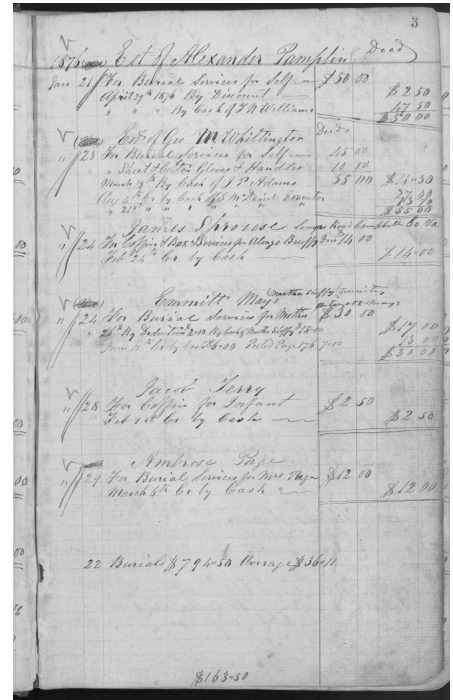 3
1876 Est of Alexander Pamplin Dead
Jan 21 For Burial Services for Self $50 00
April 29th 1876 By Discount $2 50
" " " By Cash of J N Williams 47 50
$50 00
Est of Geo M Whittington Dead
" 23 For Burial Services for Self 45 00
" Shirt Collar Gloves & Handles 10 00
March 8th By Cash of J P Adams 55 00 $14 30
Aug 4th Cr by Cash of S M Executor
" 21st " " "
$55 00
James Sprouse Road Campbell Co Va
" 24 For Coffin & Box & Services for Alonzo 14 00
Feb 24th Cr by Cash $14 00
Emmitt Mays Martha Securities
" 24 For Burial Services for Mother $30 00
26th By Deduction 2.00 By Cash 15.00 $17 00
June Cr by Cash $6.00 Posted Page 176 7.00 13 00
$30 00
Jacob Terry
" 28 For Coffin for Infant $2 50
Feb 1st Cr by Cash $2 50
Ambrose Page
" 29 For Burial Services for Mrs Page $12 00
March 8th Cr by Cash $12 00
22 Burials $794.50 Average $36.11
$163.50